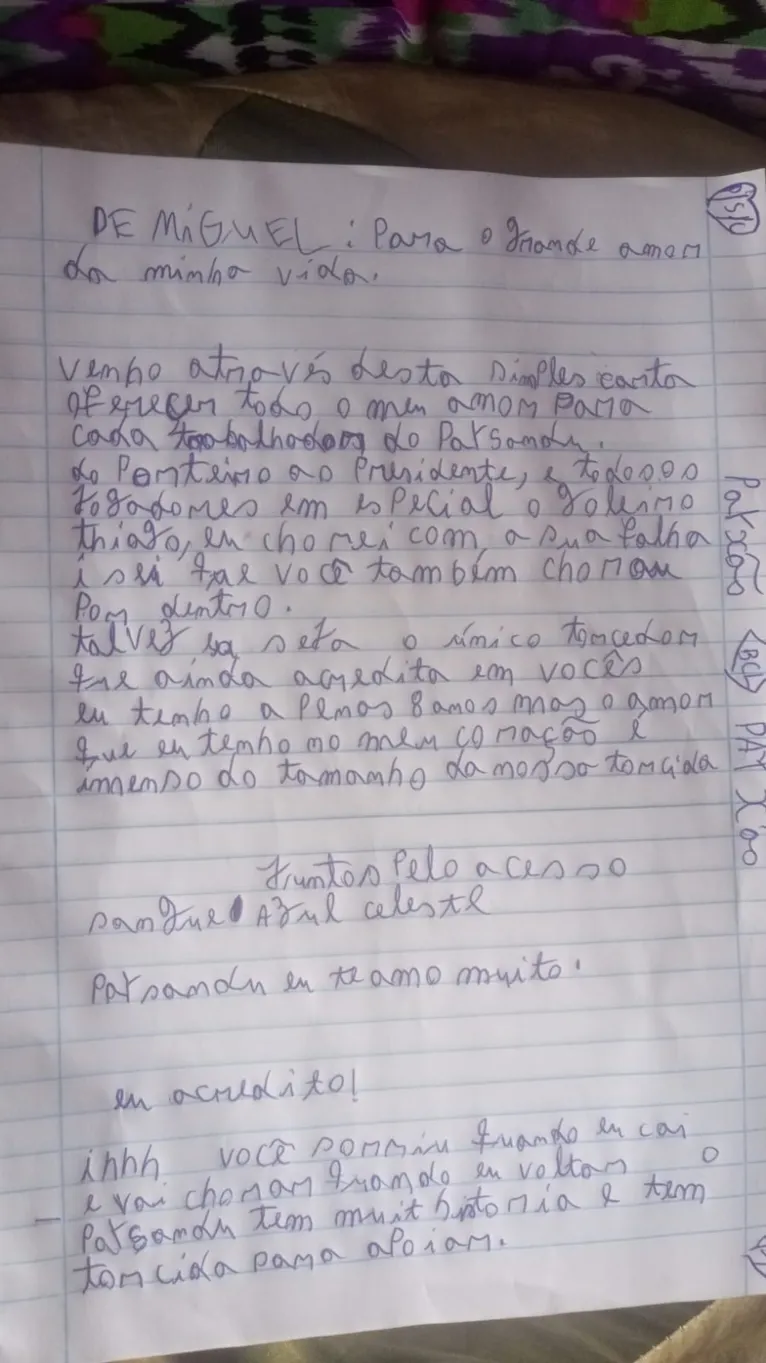 DE MiGUEL: Para o grande amor
da minha vida.
venho através desta simples carta
oferecer todo o meu amor Para
cada trabalhador do Paysandu.
do Porteiro ao Presidente, e todos os
Jogadores em especial o goleiro
thiago, eu chorei com a sua falha
i sei que você também chorou
Por dentro.
talvez eu seja o único torcedor
que ainda acredita em vocês
eu tenho a Penas 8 anos mas o amor
que eu tenho no meu coração é
imenso do tamanho da nossa torcida
Juntos Pelo acesso
sangue Azul celeste
Paysandu eu te amo muito.
eu acredito!
ihhh você sorriu quando eu cai
e vai chorar quando eu voltar o
Paysandu tem muit historia e tem
torcida para apoiar.